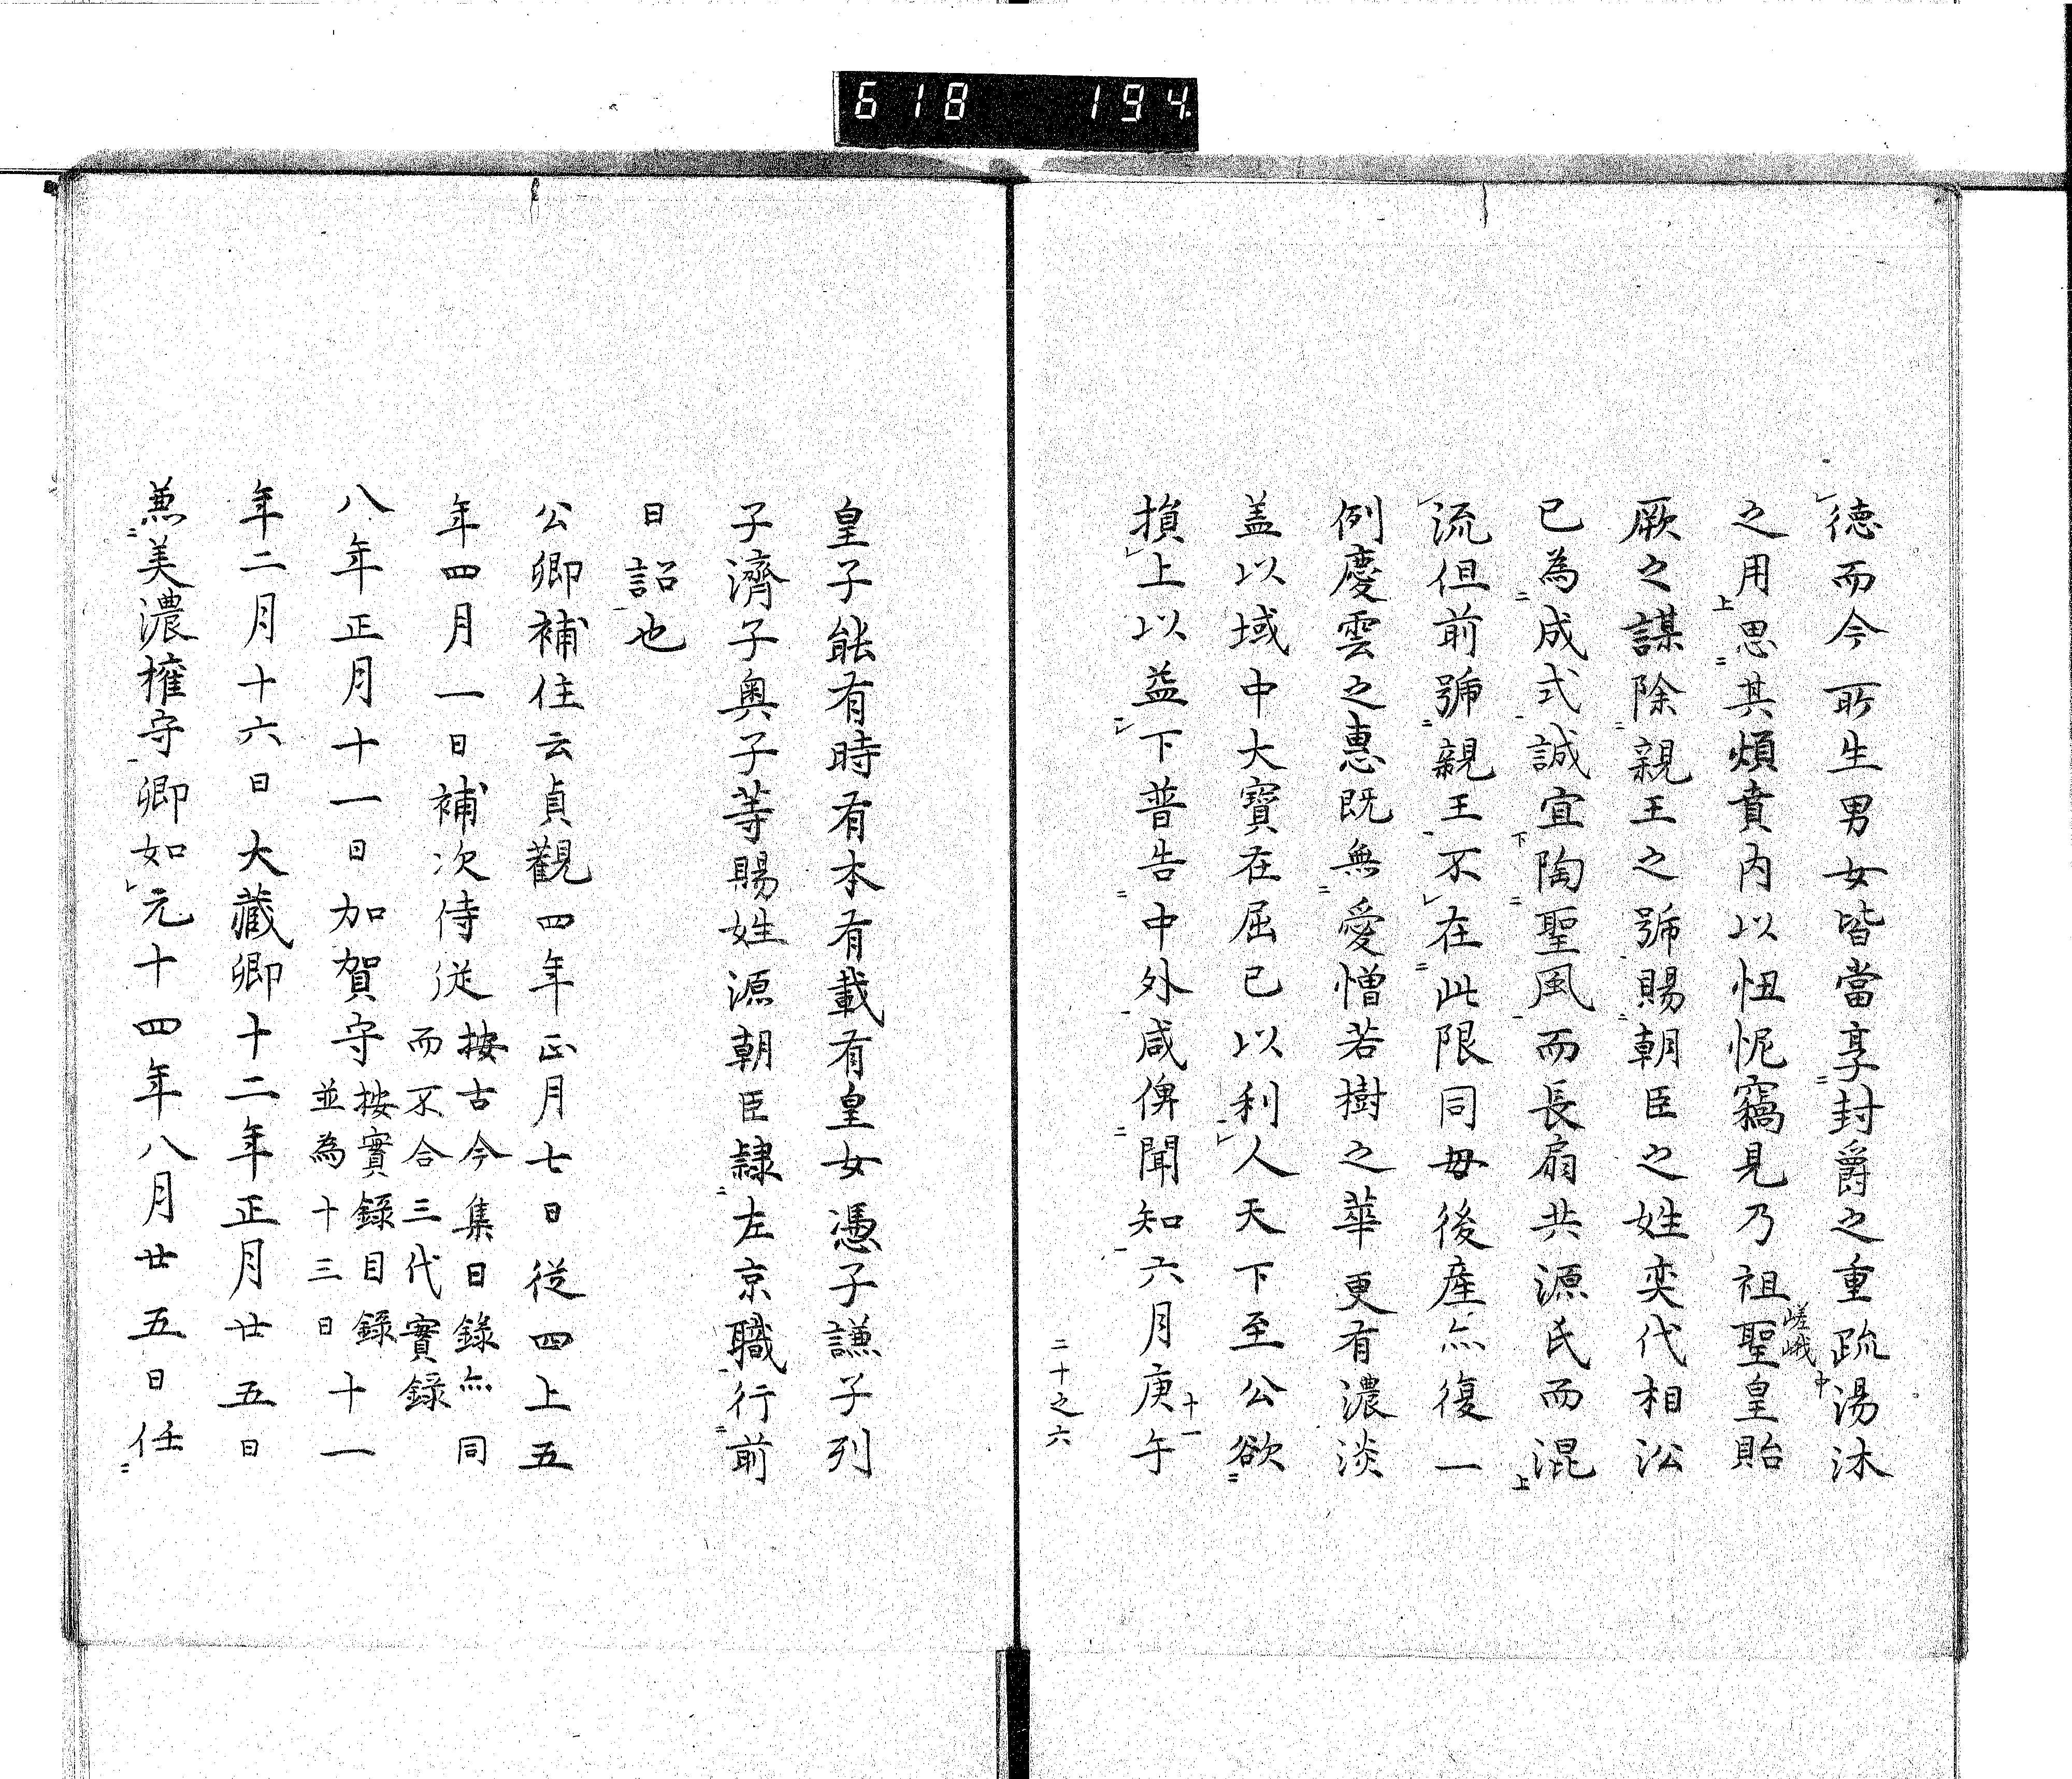 618 194
德而今所生男女皆當享封爵之重疏湯沐
之用思其煩賁內以忸怩竊見乃祖聖皇貽
嵯峨
厥之謀除親王之號賜朝臣之姓奕代相沿
已為成式誠宜陶聖風而長扇共源氏而混
流但前號親王不在此限同母後産亦復一
例慶雲之惠既無愛憎若樹之華更有濃淡
盖以域中大寶在屈已以利人天下至公欲
損上以益下普告中外咸俾聞知六月庚午
十一
二十之六
皇子能有時有本有載有皇女憑子謙子列
子濟子奥子等賜姓源朝臣隷左京職行前
日詔也
公卿補任云貞觀四年正月七日從四上五
年四月一日補次侍從按古今集目錄亦同
而不合三代實録
八年正月十一日加賀守按實錄目錄十一
並為十三日
年二月十六日大藏卿十二年正月廿五日
兼美濃権守卿如元十四年八月廿五日任